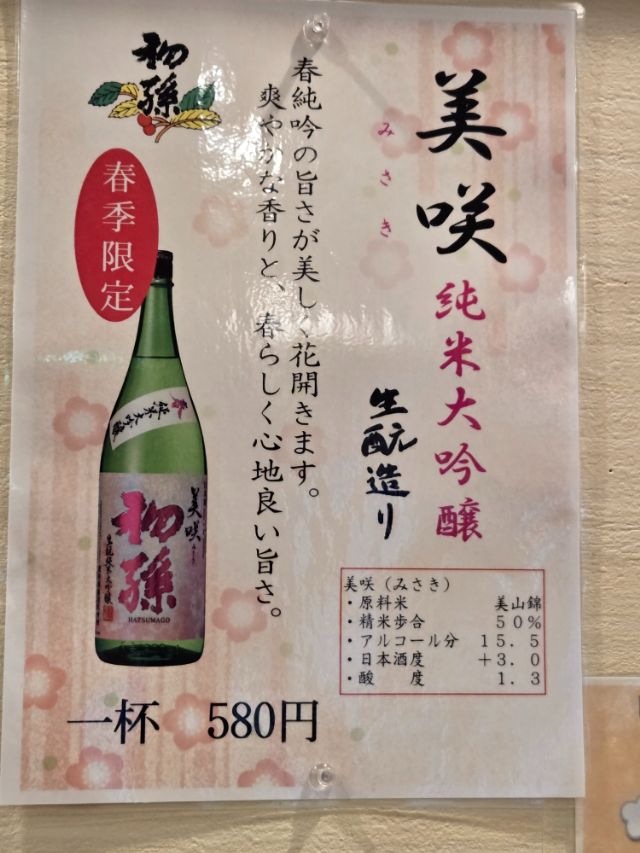 美咲
みさき
純米大吟醸
生酛造り
春純吟の旨さが美しく花開きます。
爽やかな香りと、春らしく心地良い旨さ。
初孫
春季限定
春 純米大吟醸
美咲
初孫
生酛純米大吟醸
HATSUMAGO
美咲（みさき）
・原料米 美山錦
・精米歩合 50%
・アルコール分 15.5
・日本酒度 +3.0
・酸 度 1.3
一杯 580円